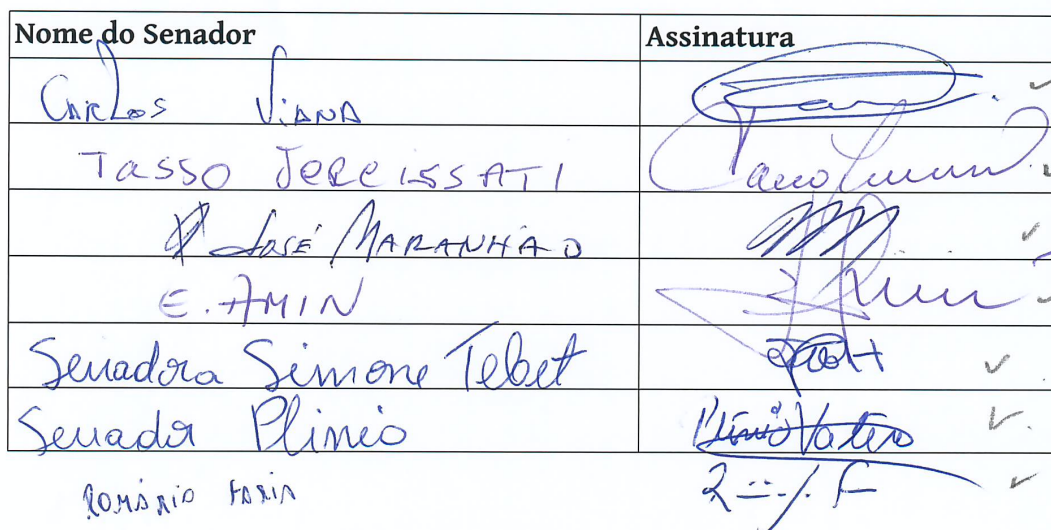 Nome do Senador Assinatura
Carlos Viana
Tasso Jereissati
José Maranhão
E. Amin
Senadora Simone Tebet
Senador Plinio Plinio Valerio
Romário Faria